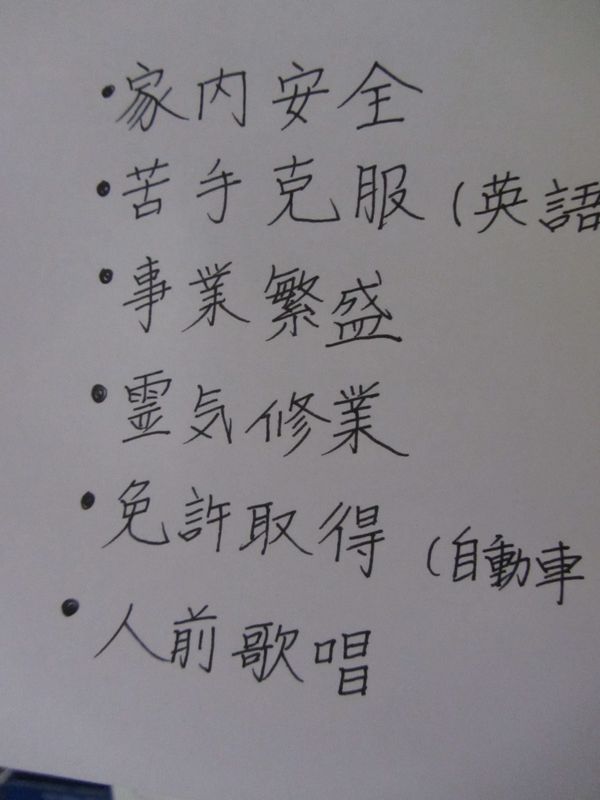 ・家内安全
・苦手克服(英語
・事業繁盛
・霊気修業
・免許取得(自動車
・人前歌唱